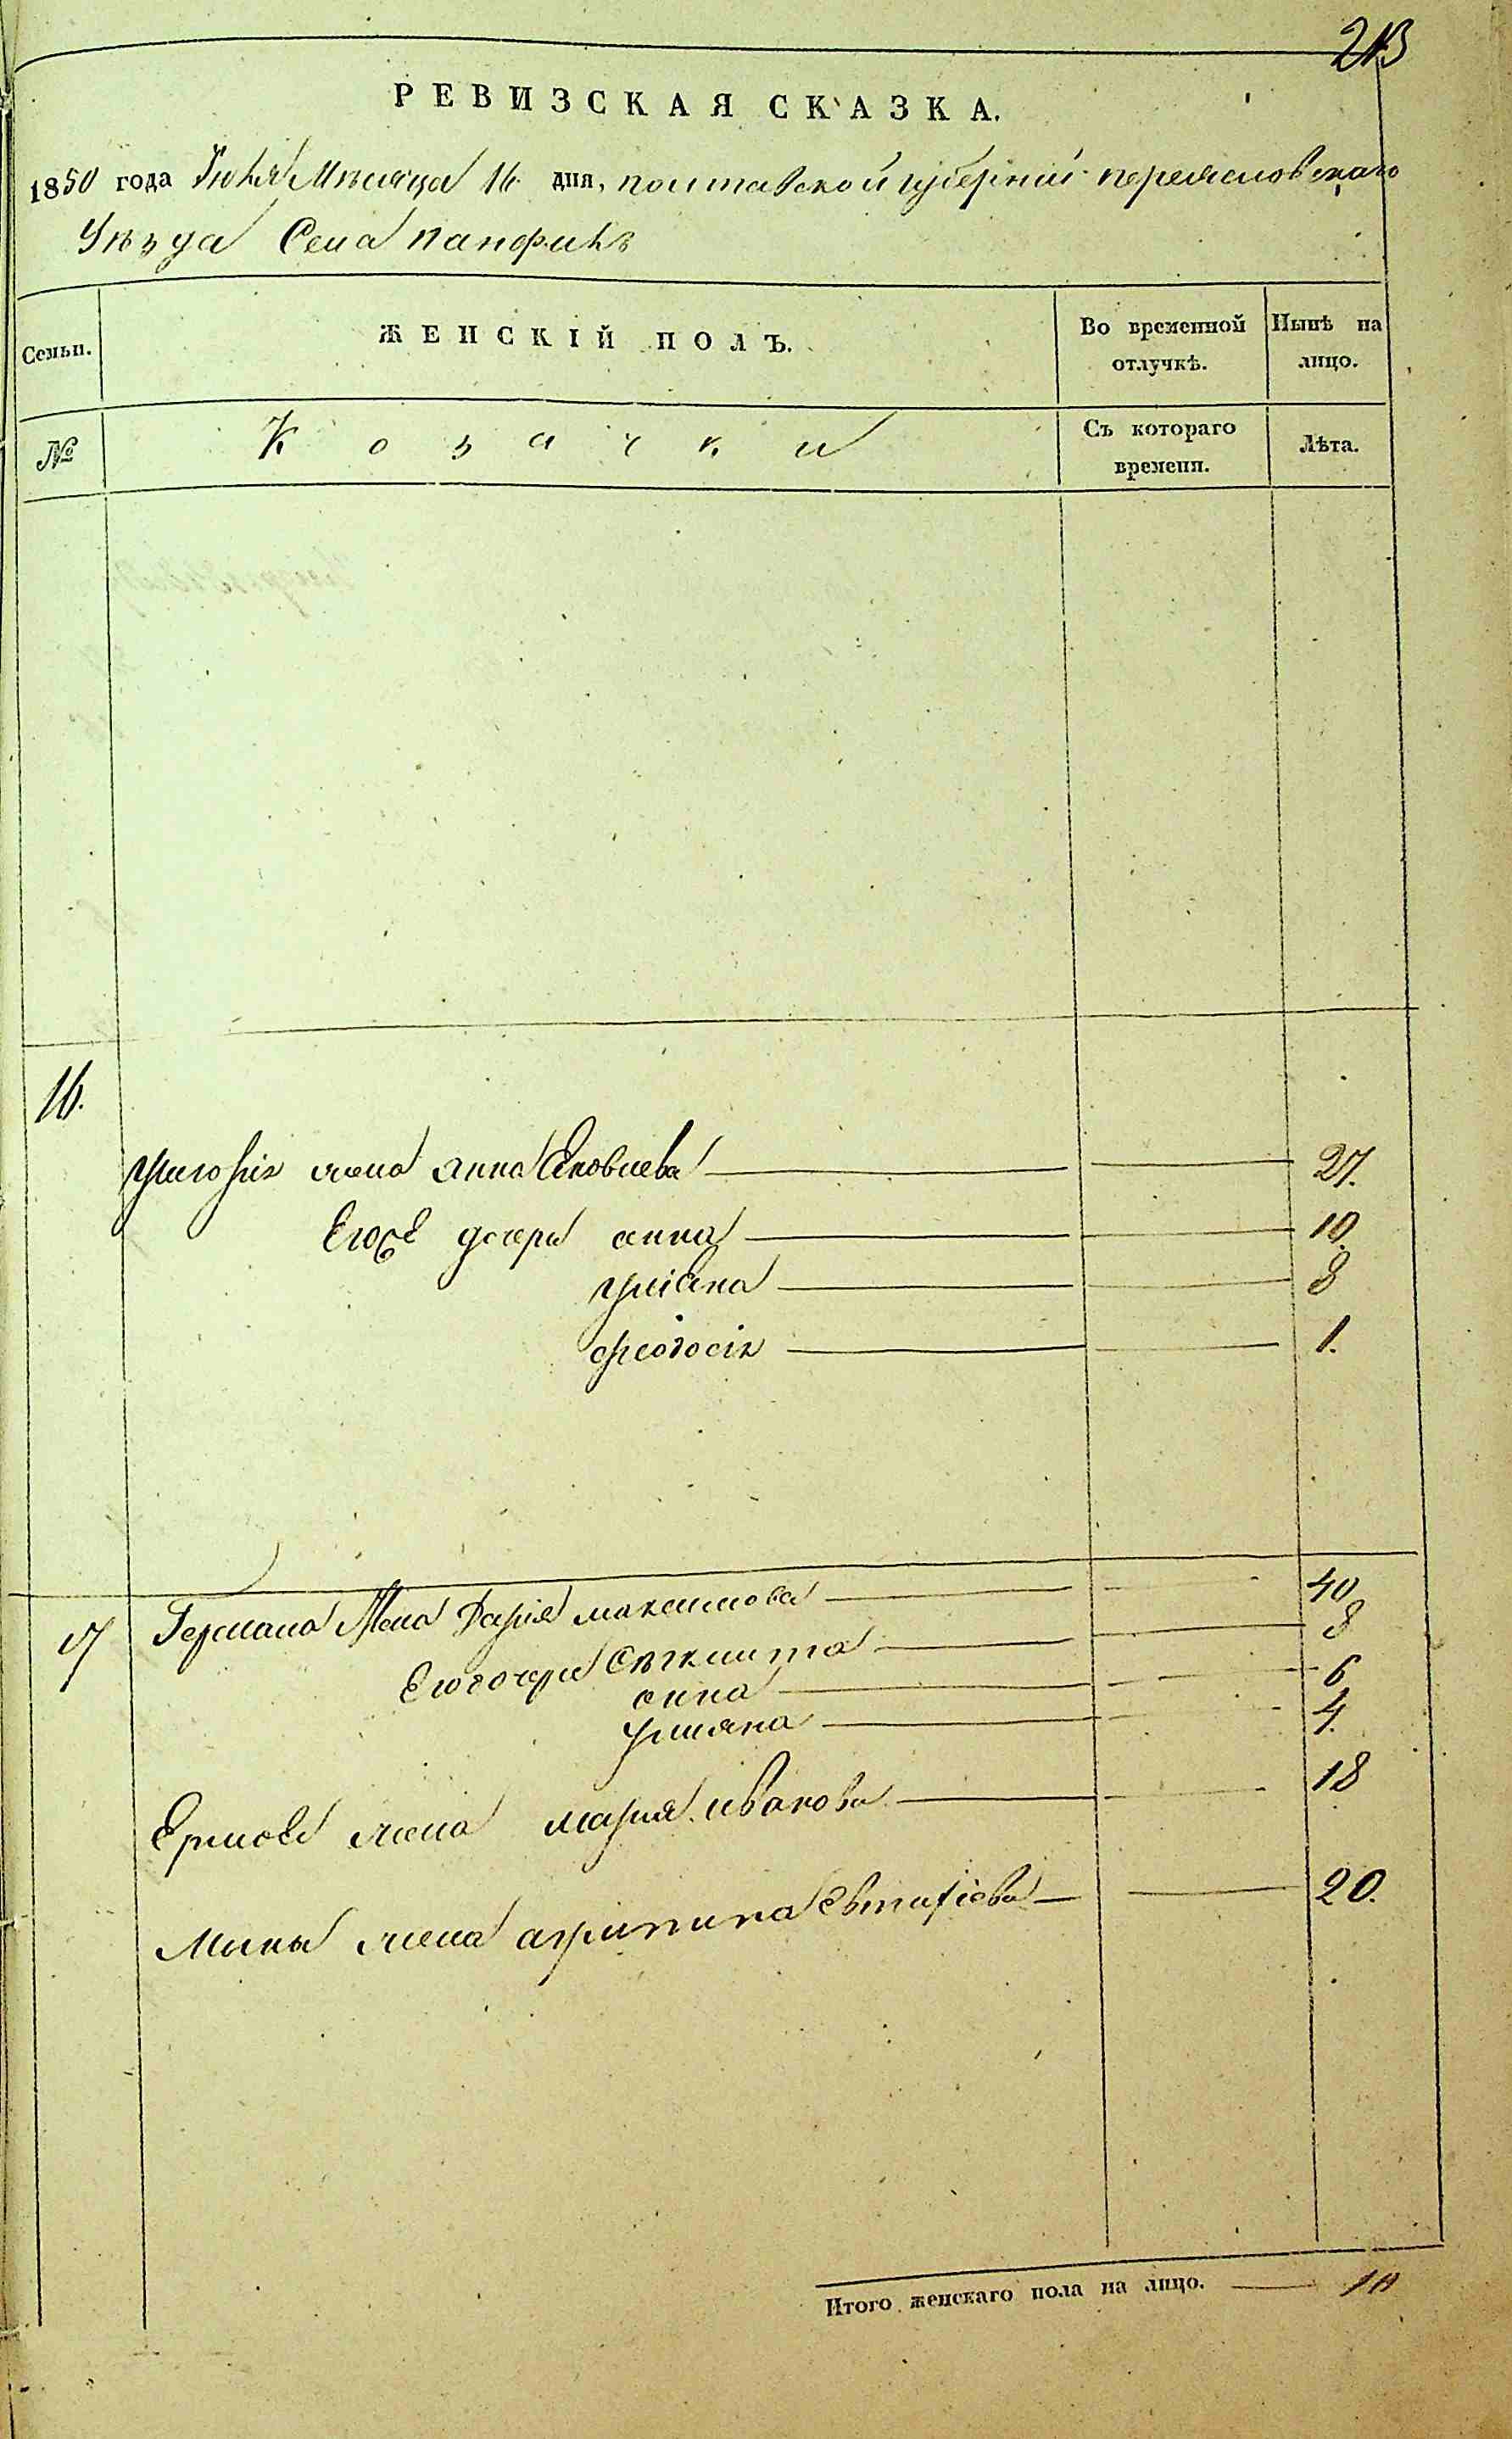 213
РЕВИЗСКАЯ СКАЗКА.
1850 года Июля Месяца 16 дня, полтавской губерний переяславскаго
Уѣзда Села панфилъ
Семьи. ЖЕНСКІЙ ПОЛЪ. Во временной отлучкѣ. Нынѣ на лицо.
№ Козачки Съ котораго времени. Лѣта.
16.
григорія жена Анна Яковлева 27.
Его дочери анна 10.
уліана 8
феодосія 1.
17 Германа Жена Дарія максимова 40
Его дочери 8
анна 6
улияна 4.
жена мария иванова 18
Мины жена агрипина Евтафіева 20.
Итого женскаго пола на лицо. 10